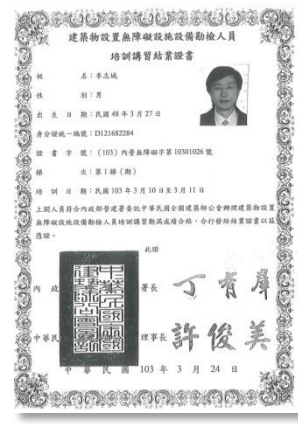 建築物設置無障礙設施設備勘檢人員
培訓講習結業證書
姓　　名：李志城
性　　別：男
出生日期：民國48年3月27日
身分證統一編號：D121682284
證書字號：(103)內營無障礙字第10301026號
梯　　次：第1梯(期)
培訓日期：民國103年3月10日至3月11日
上開人員符合內政部營建署委託中華民國全國建築師公會辦理建築物設置
無障礙設施設備勘檢人員培訓講習期滿成績合格，合行發給結業證書以茲
憑證。
此證
內政
署長 丁育群
中華民
理事長 許俊美
中華民國103年3月24日